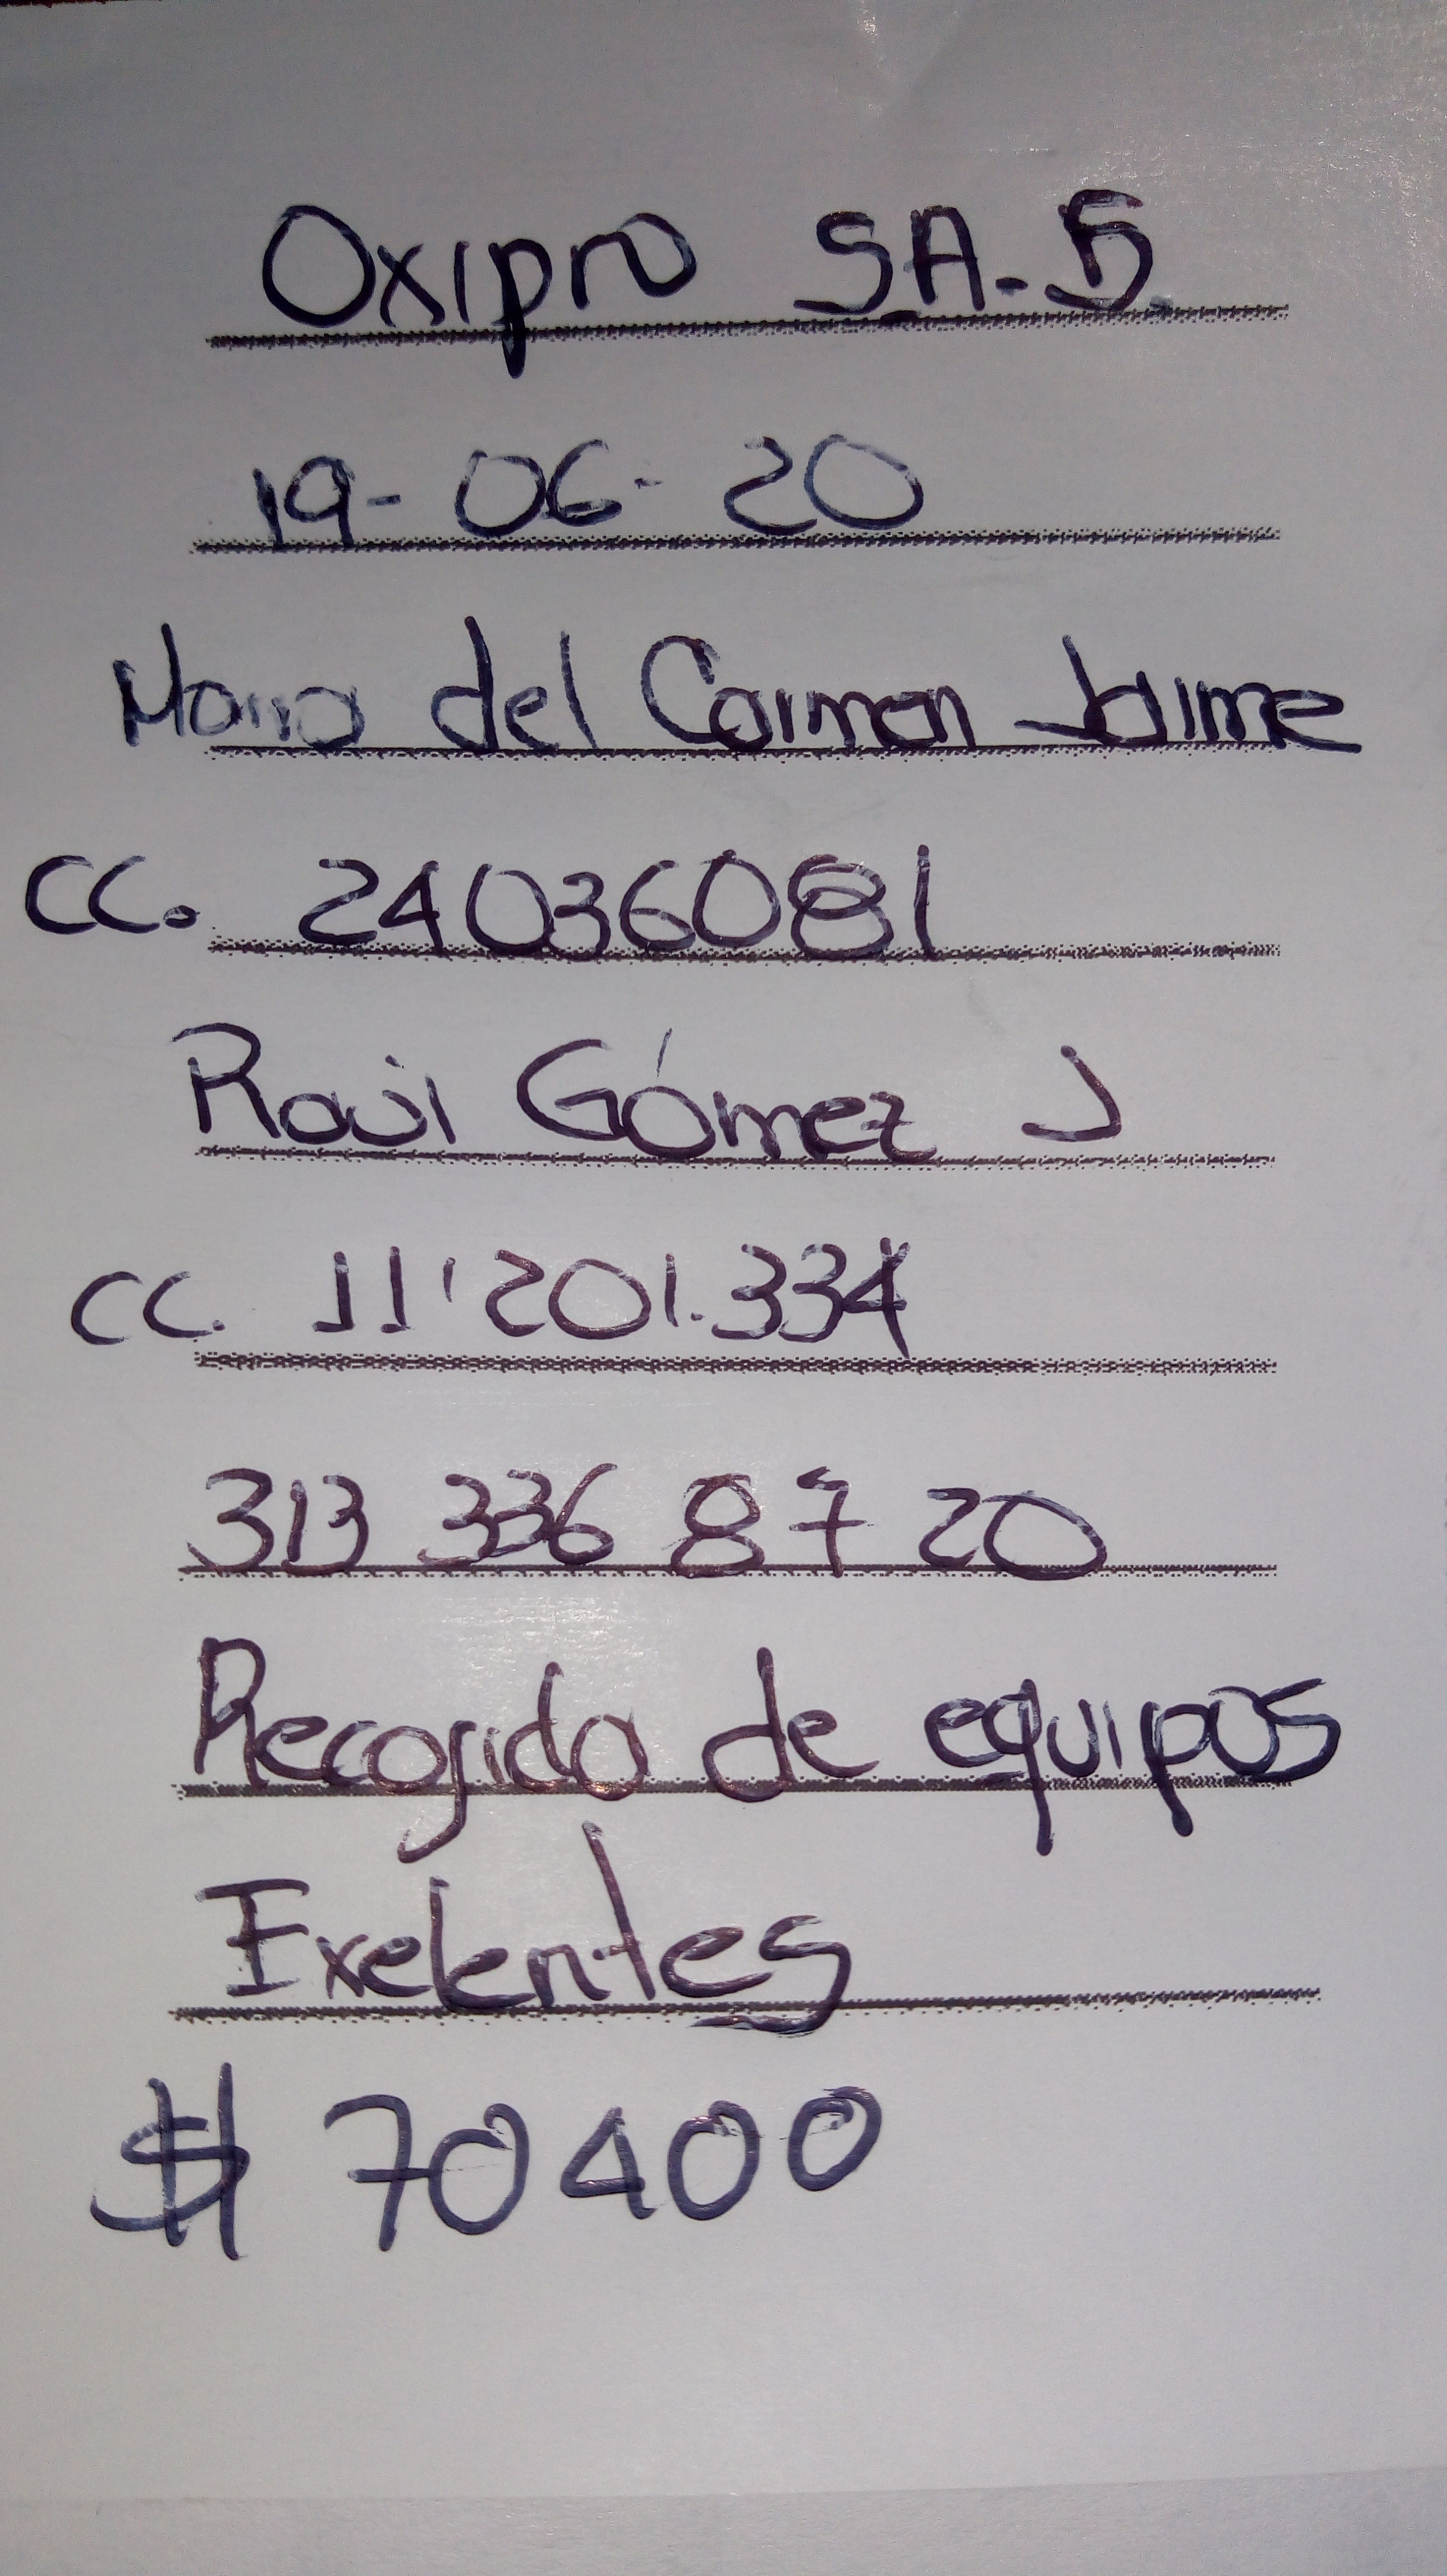 Oxipro S.A.S.
19-06-20
Maria del Carmen Jaime
CC. 24036081
Raúl Gómez J
CC. 11'201.334
313 336 87 20
Recogida de equipos
Exelentes
$ 70400